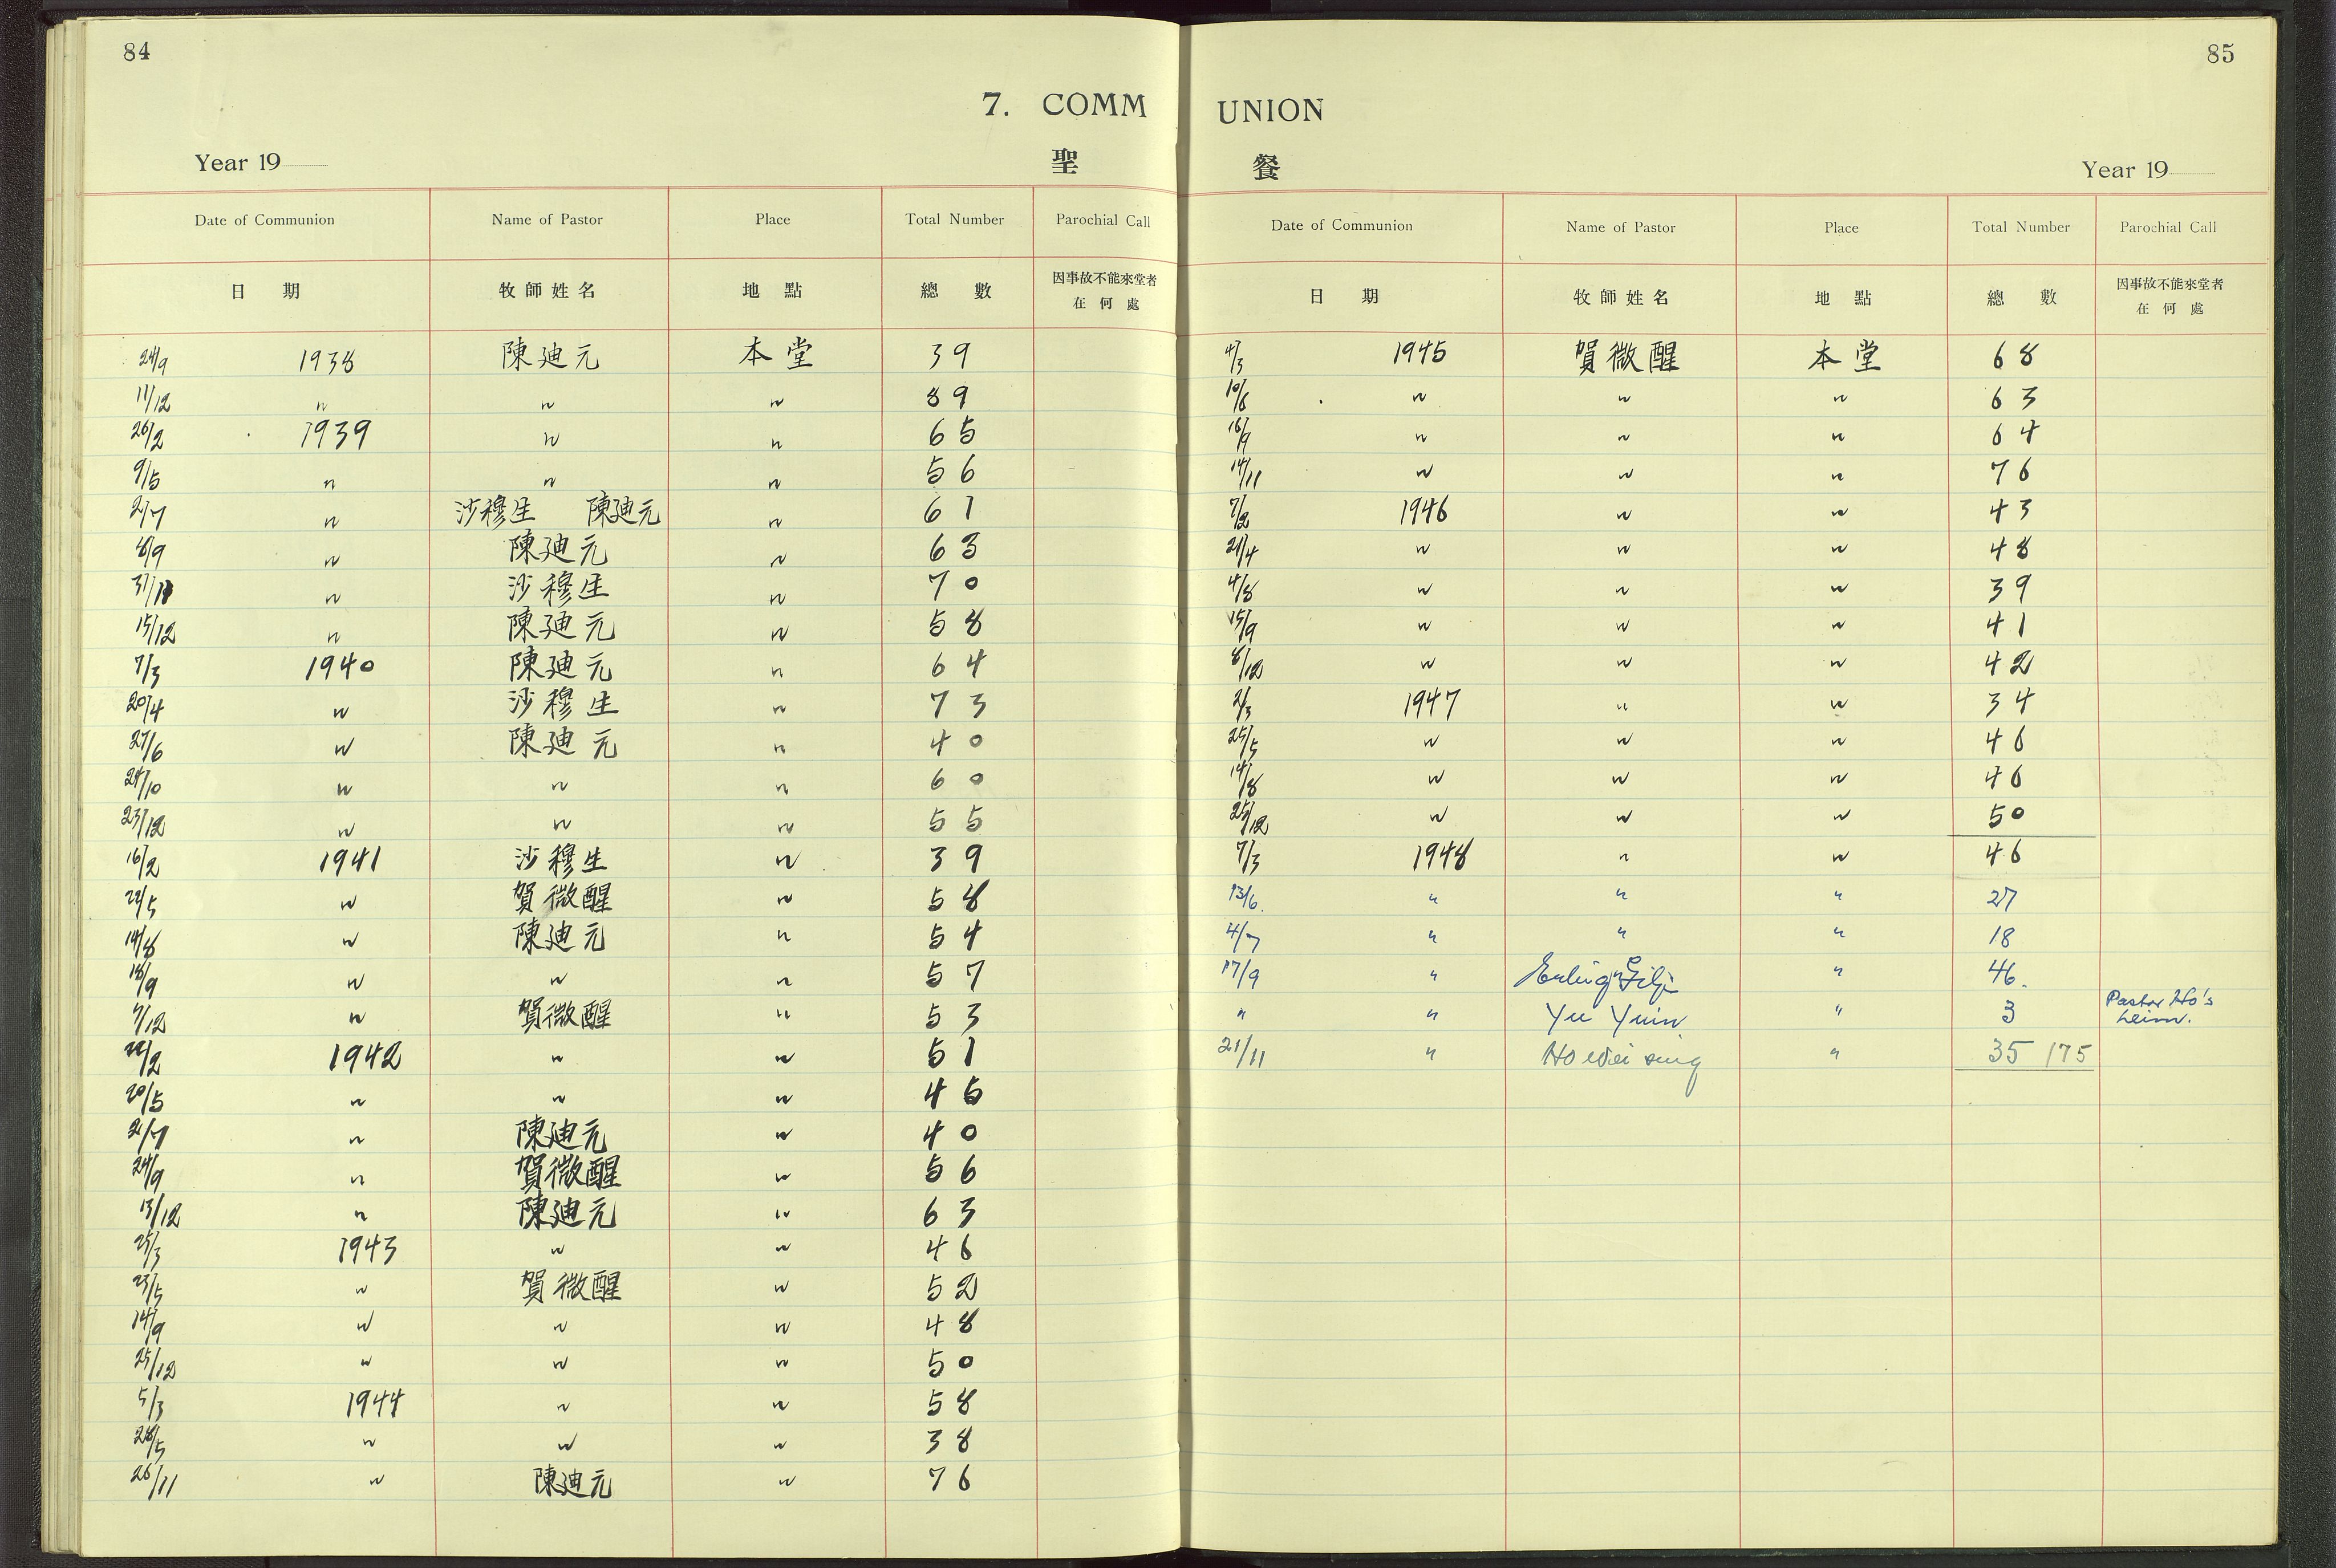 84
7. COMM
Year 19
聖
Date of Communion Name of Pastor Place Total Number Parochial Call
日 期 牧師姓名 地點 總數 因事故不能來堂者
在何處
24/9 1938 陳廸元 本堂 39
11/12 〃 〃 〃 89
26/2 1939 〃 〃 65
9/5 〃 〃 〃 56
2/7 〃 沙穆生 陳廸元 〃 61
〃 陳廸元 〃 63
〃 沙穆生 〃 70
15/12 〃 陳廸元 〃 58
7/3 1940 陳廸元 〃 64
20/4 〃 沙穆生 〃 73
27/6 〃 陳廸元 〃 40
24/10 〃 〃 〃 60
23/12 〃 〃 〃 55
16/2 1941 沙穆生 〃 39
〃 賀微醒 〃 58
14/8 〃 陳廸元 〃 54
18/9 〃 〃 〃 57
7/12 〃 賀微醒 〃 53
22/2 1942 〃 〃 51
20/5 〃 〃 〃 45
2/7 〃 陳廸元 〃 40
24/9 〃 賀微醒 〃 56
13/12 〃 陳廸元 〃 63
25/3 1943 〃 〃 46
23/5 〃 賀微醒 〃 52
14/9 〃 〃 〃 48
25/12 〃 〃 〃 50
5/3 1944 〃 〃 58
28/5 〃 〃 〃 38
26/11 〃 陳廸元 〃 76
85
UNION
餐
Year 19
Date of Communion Name of Pastor Place Total Number Parochial Call
日 期 牧師姓名 地點 總數 因事故不能來堂者
在何處
4/3 1945 賀微醒 本堂 68
10/6 〃 〃 〃 63
16/9 〃 〃 〃 64
14/11 〃 〃 〃 76
7/2 1946 〃 〃 43
21/4 〃 〃 〃 48
4/8 〃 〃 〃 39
15/9 〃 〃 〃 41
8/12 〃 〃 〃 42
2/3 1947 〃 〃 34
25/5 〃 〃 〃 46
14/8 〃 〃 〃 46
25/12 〃 〃 〃 50
7/3 1948 〃 〃 46
13/6. 〃 〃 〃 27
4/7 〃 〃 〃 18
17/9 〃 Erling Gilje 〃 46.
〃 〃 Yu Yuin 〃 3 Pastor Ho's
heim.
21/11 〃 Ho Wei sing 〃 35 175